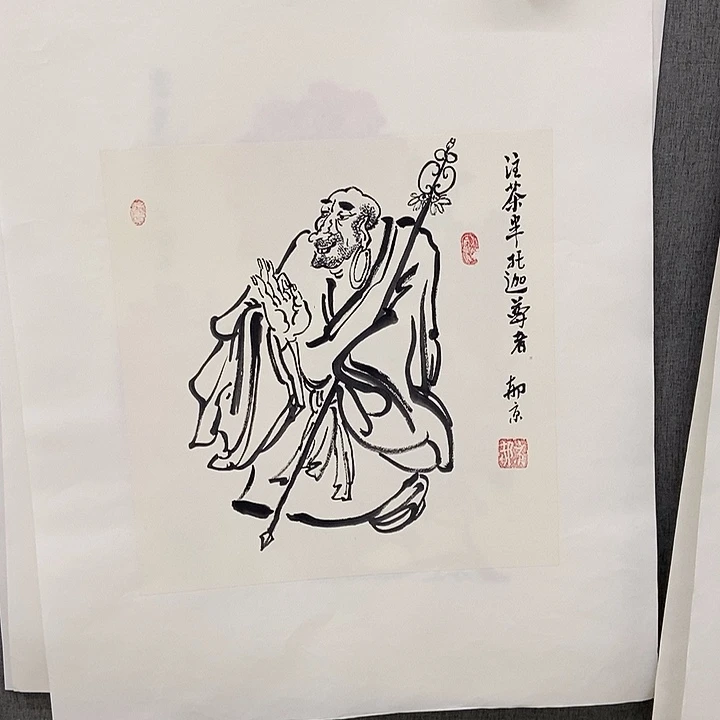 注茶半托迦尊者 柳京